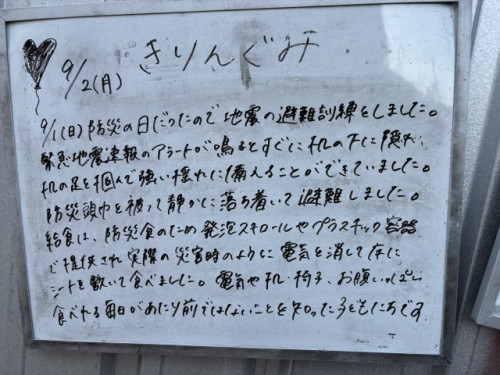 9/2(月) きりんぐみ
9/1(日)防災の日だったので地震の避難訓練をしました。
緊急地震速報のアラートが鳴るとすぐに机の下に隠れ、
机の足を掴んで強い揺れに備えることができていました。
防災頭巾を被って静かに落ち着いて避難しました。
給食は、防災食のため発泡スチロールやプラスチック容器
で提供され実際の災害時のように電気を消して床に
シートを敷いて食べました。電気や机・椅子、お腹いっぱい
食べれる毎日があたり前ではないことを知った子どもたちです。